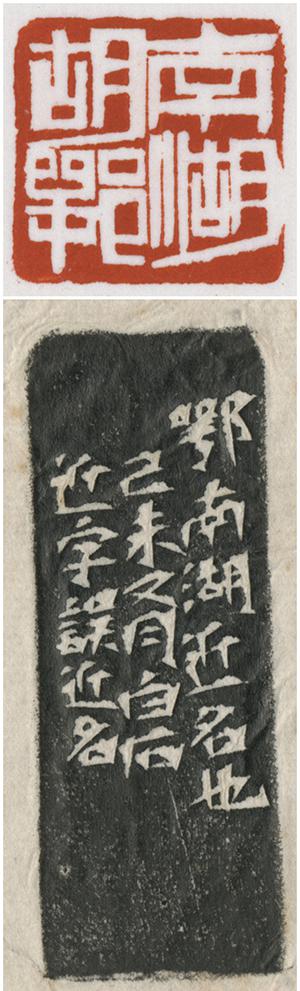 南湖
胡鄂
鄂南湖近名也
己未又月白石
近字誤近名